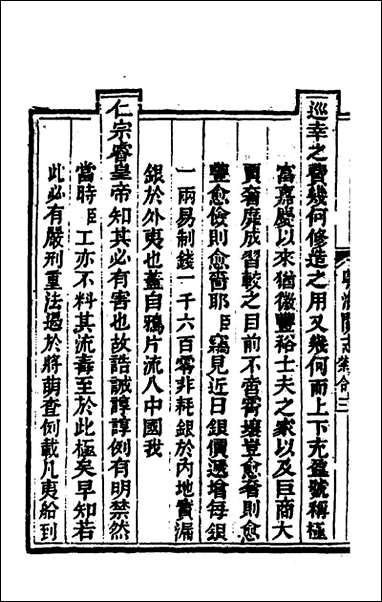 巡幸之費幾何修造之用又幾何而上下充盈號稱極
富嘉慶以來猶徵豐裕士夫之家以及巨商大
賈奢靡成習較之目前不啻霄壤豈愈奢則愈
豐愈儉則愈嗇耶臣竊見近日銀價遞增每銀
一兩易制錢一千六百零非耗銀於內地實漏
銀於外夷也蓋自鴉片流入中國我
仁宗睿皇帝知其必有害也故誥誡諄諄例有明禁然
當時臣工亦不料其流毒至於此極矣早知若
此必有嚴刑重法遏於將萌查例載凡夷船到